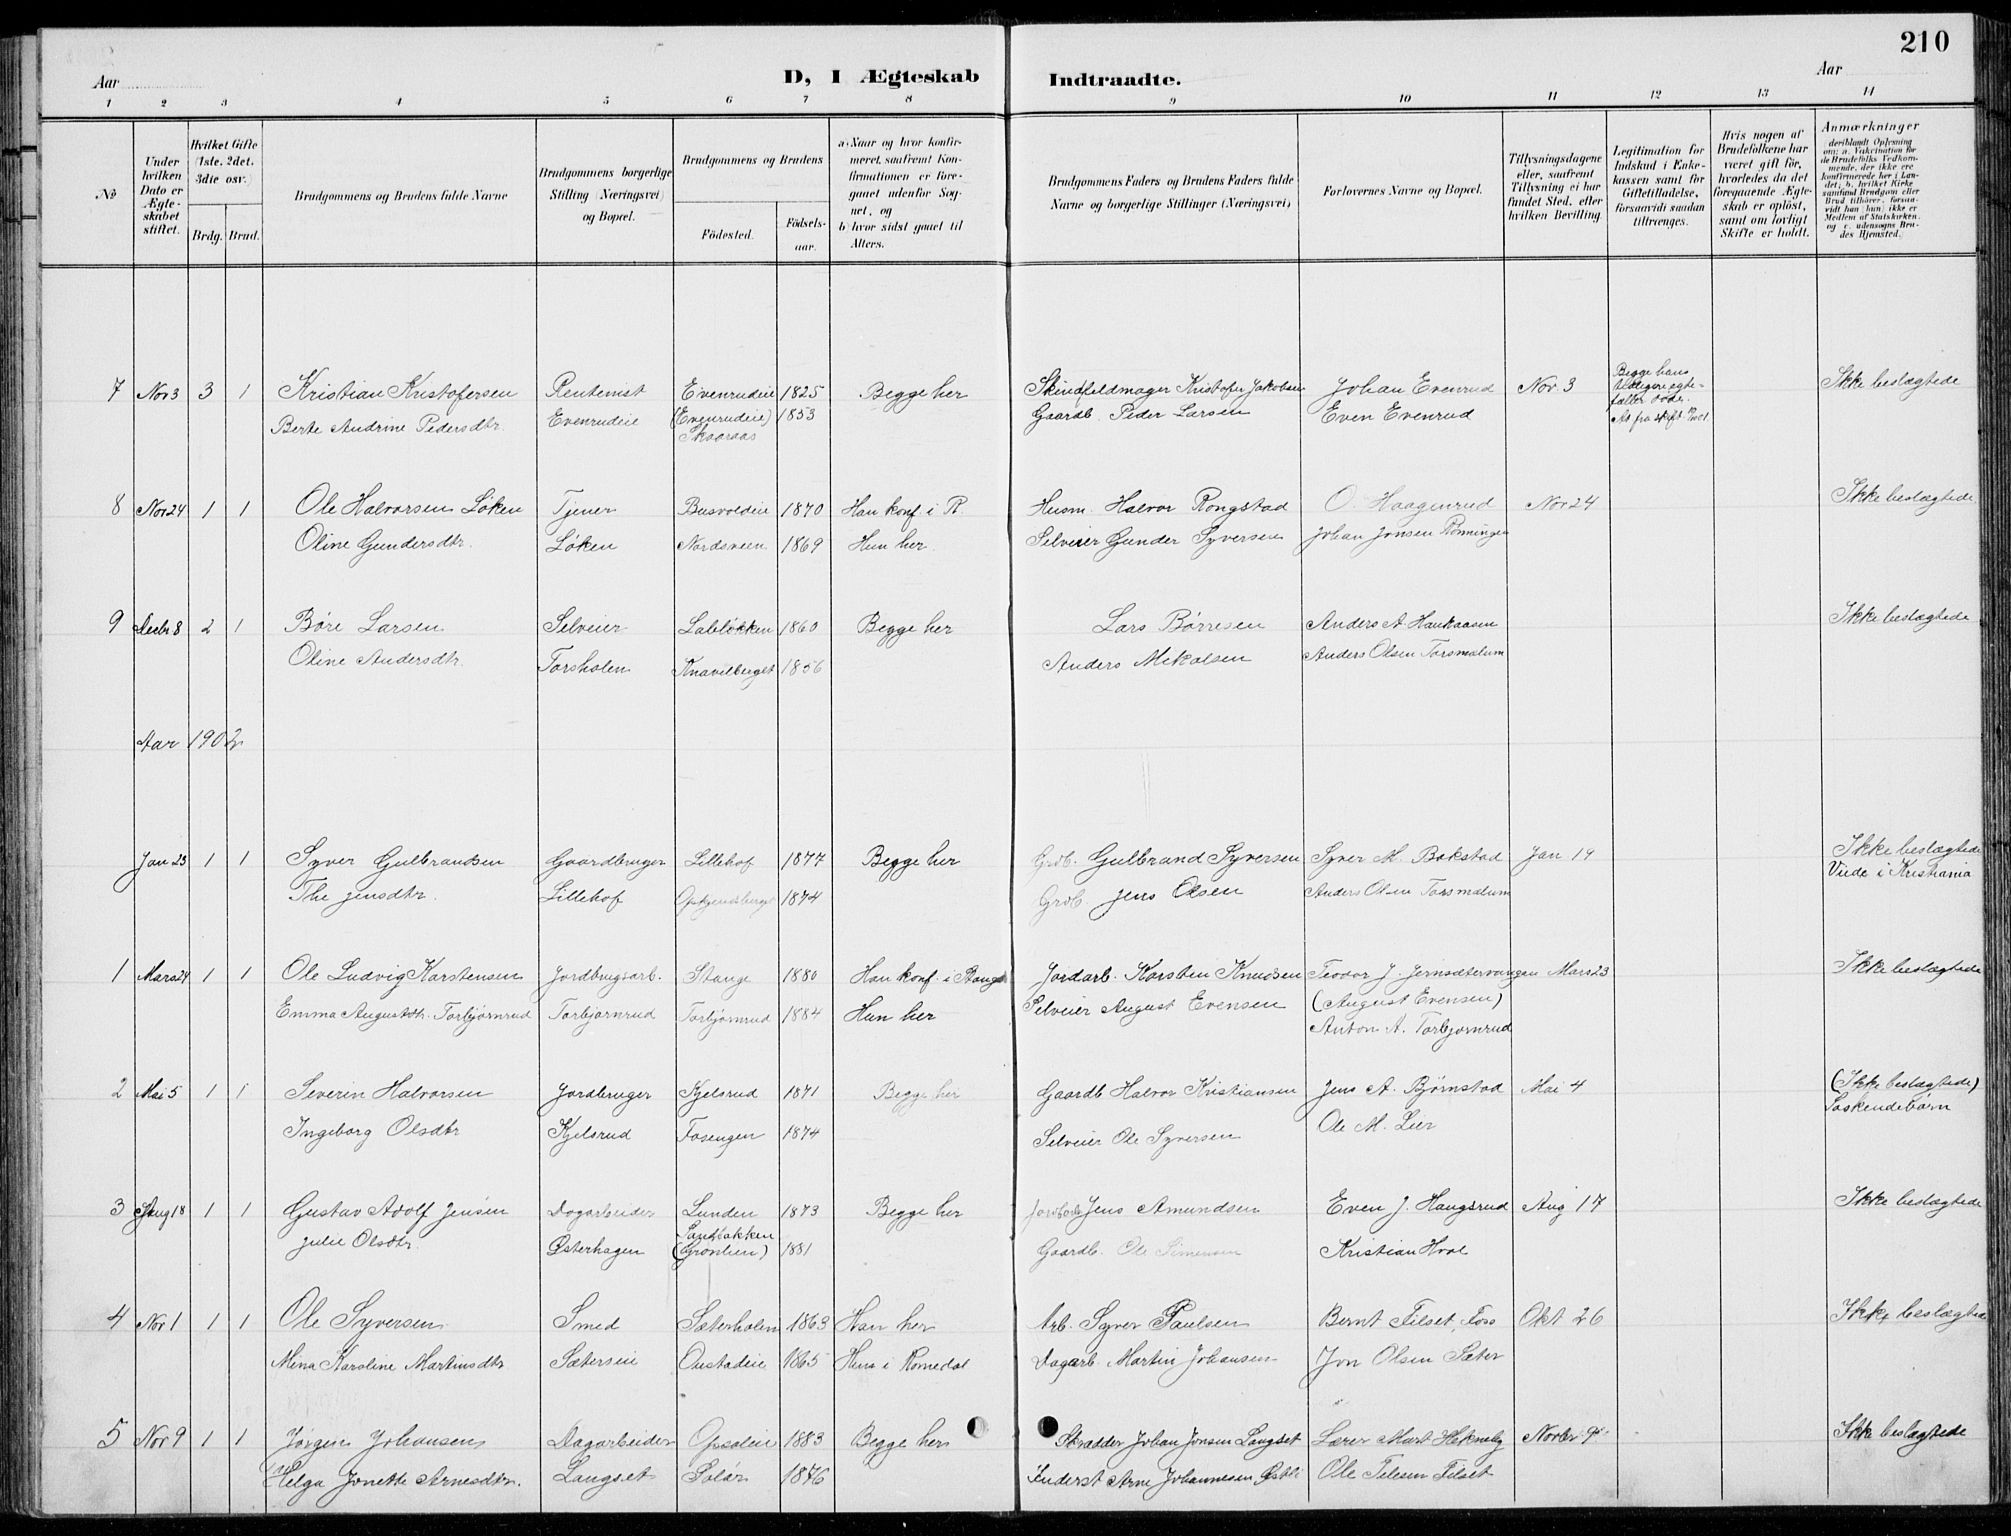 210
Aar
D, I Ægteskab Indtraadte.
Aar
1 2 3 4 5 6 7 8 9 10 11 12 13 14
№
Under hvilken Dato er Ægteskabet stiftet.
Hvilket Gifte (1ste. 2det. 3die osv.)
Brdg. Brud.
Brudgommens og Brudens fulde Navne
Brudgommens borgerlige Stilling (Næringsvei) og Bopæl.
Brudgommens og Brudens
Fødested.
Fødselsaar.
a) Naar og hvor konfirmeret, saafremt Konfirmationen er foregaaet udenfor Sognet, og
b) hvor sidst gaaet til Alters.
Brudgommens Faders og Brudens Faders fulde Navne og borgerlige Stillinger (Næringsvei)
Forlovernes Navne og Bopæl.
Tillysningsdagene eller, saafremt Tillysning ei har fundet Sted, efter hvilken Bevilling.
Legitimation for Indskud i Enkekassen samt for Giftetilladelse, forsaavidt saadan tiltrænges.
Hvis nogen af Brudefolkene har været gift før, hvorledes da det foregaaende Ægteskab er opløst, samt om lovligt Skifte er holdt.
Anmærkninger
deriblandt Oplysning om: a. Vakcination for de Brudefolks Vedkommende, der ikke ere konfirmerede her i Landet; b. hvilket Kirkesamfund Brudgom eller Brud tilhører, forsaavidt han (hun) ikke er Medlem af Statskirken. og c. udensogns Brudes Hjemsted.
7 Nov 3 3 1 Kristian Kristofersen Rentenist Evenrudeie 1825 Begge her Skindfeldmager Kristofer Jakobsen Johan Evenrud Nov. 3 Begge hans tidligere egtefæller døde. Ikke beslægtede
Berte Andrine Pedersdtr Evenrudeie (Evenrudeie) Skaaraas 1853 Gaardb. Peder Larsen Even Evenrud
8 Nov 24 1 1 Ole Halvorsen Løken Tjener Busvoldeie 1870 Han konf i R. Husm. Halvor Rongstad O. Haagenrud Nov 24 Ikke beslægtede
Oline Gundersdtr. Løken Nordsveen 1869 Hun her. Selveier Gunder Syversen Johan Jonsen Rønningen
9 Decbr 8 2 1 Børe Larsen Selveier Labløkken 1860 Begge her Lars Børresen Anders A Haukaasen Ikke beslægtede
Oline Andersdtr. Torsholen Knavilberget 1856 Anders Mikalsen Anders Olsen Torsmalum
Aar 1902
Jan 23 1 1 Syver Gulbrandsen Gaardbruger Lillehof 1877 Begge her Grdb. Gulbrand Syversen Syver M. Bakstad Jan 19 Ikke beslægtede
The Jensdtr. Lillehof 1874 Grdb Jens Olsen Anders Olsen Torsmalum Viede i Kristiania
1 Mars 24 1 1 Ole Ludvig Karstensen Jordbrugsarb. Stange 1880 Han konf. i Stange Jordarb. Karsten Knudsen Teodor J. Jernsætervangen Mars 23 Ikke beslægtede
Emma Augustdtr. Torbjørnrud Torbjørnrud Torbjørnrud 1884 Hun her Selveier August Evensen (August Evensen)
Anton A. Torbjørnrud
2 Mai 5 1 1 Severin Halvorsen Jordbruger Kjelsrud 1871 Begge her Gaardb Halvor Kristiansen Jens A. Bjørnstad Mai 4 (Ikke beslægtede)
Ingeborg Olsdtr Kjelsrud Fosengen 1874 Selveier Ole Syversen Ole M. Lier Søskendebørn
3 Aug 18 1 1 Gustav Adolf Jensen Dagarbeider Lunden 1873 Begge her Jens Amundsen Even J. Haugsrud Aug 17 Ikke beslægtede
Julie Olsdtr. Østerhagen Sandbakken (Grønlien) 1881 Gaardb. Ole Simensen Kristian Hval
4 Nov 1 1 1 Ole Syversen Smed Sæterholen 1863 Han her Arb. Syver Paulsen Bernt Filset, Foss Okt 26 Ikke beslægtede
Mina Karoline Martinsdtr Sæterseie Oustadeie 1865 Hun i Romedal Dagarb. Martin Johansen Jon Olsen Sæter
5 Nov 9 1 1 Jørgen Johansen Dagarbeider Opsaleie 1883 Begge her Skradder Johan Jonsen Langset Lærer Mart. Hekneby Novbr 9 Ikke beslægtede
Helga Jonette Arnesdtr. Langset Solør 1876 Inderst Arne Johannesen Østli Ole Tilesen Filset